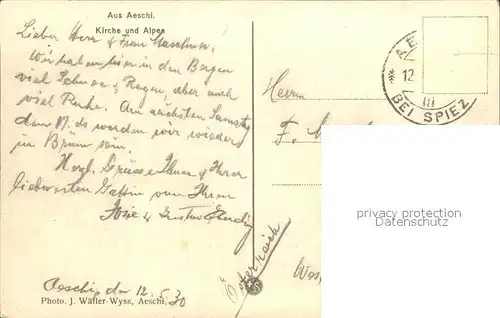 Aus Aeschi.
Kirche und Alpen
Lieber Herr & Frau
Wir haben hier in den Bergen
viel Schnee & Regen, aber auch
viel Ruhe. Am nächsten Samstag
den werden wir wieder
in Brünn sein.
Herzl. Grüsse Ihnen & Ihrer
liebwerten Gattin von Ihren
Josie & Gustav
Aeschi, den 12. 5. 30
Photo. J. Wäfler-Wyss, Aeschi.
Herrn
F.
Österreich
12
III
BEI SPIEZ
privacy protection
Datenschutz